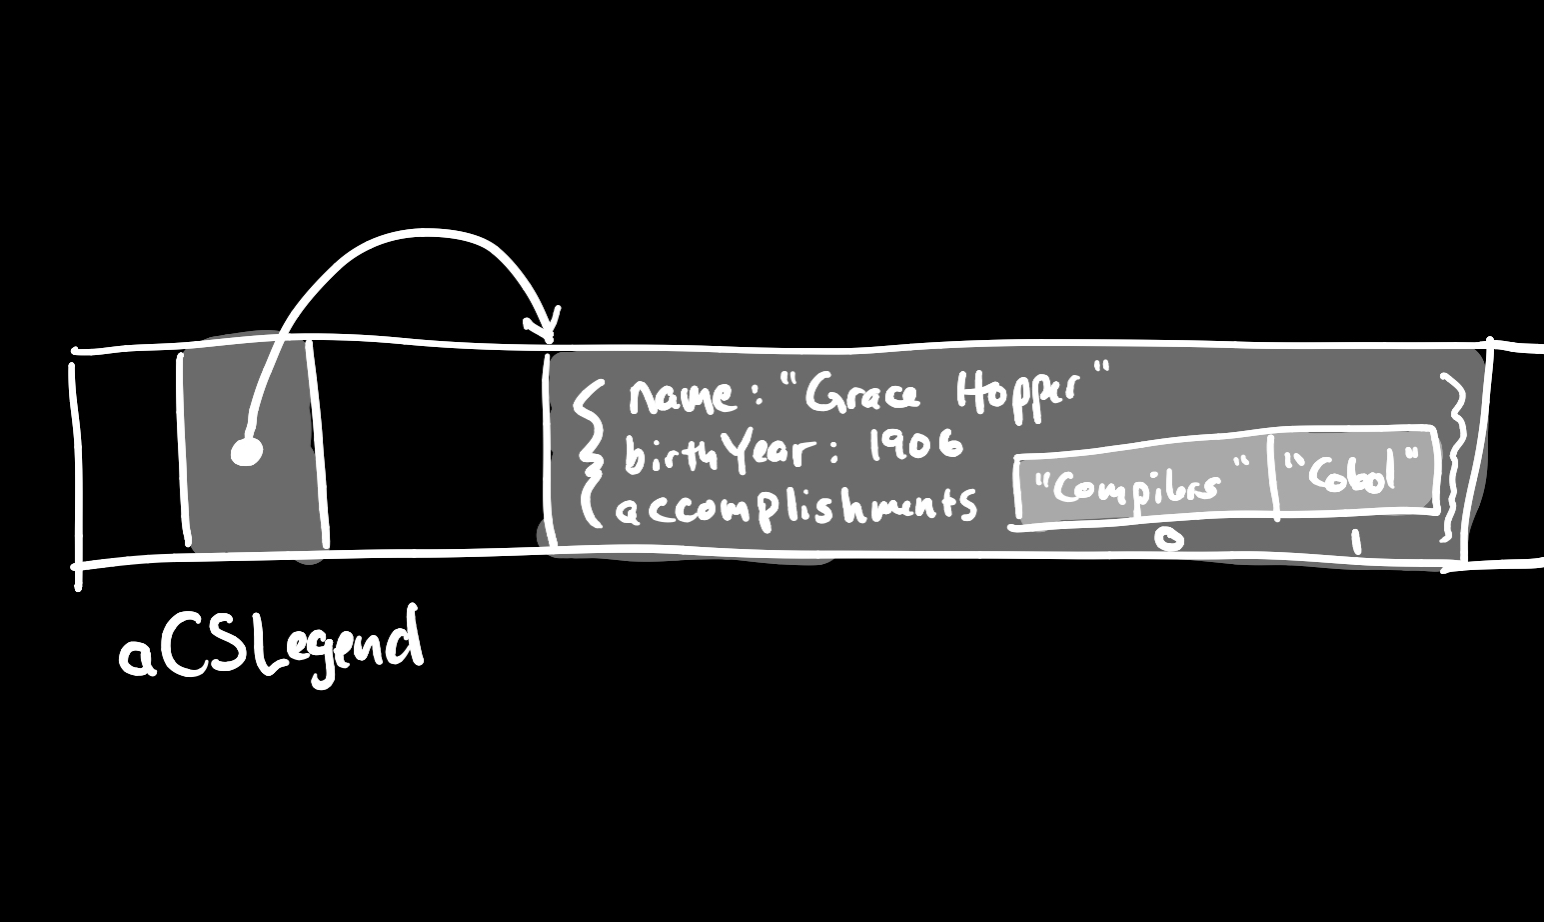 { name: "Grace Hopper"
birthYear: 1906
accomplishments "Compilers" "Cobol" }
0 1
aCSLegend